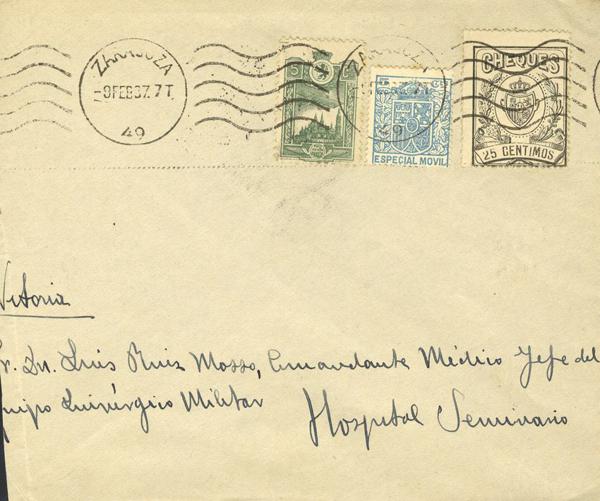 ZARAGOZA
-9FEB37.7T.
49
5 C
ZARAGOZA
7T.
49
ESPECIAL MOVIL
CHEQUES
25 CENTIMOS
Vitoria
Sr. Dn. Luis Ruiz Mosso, Comandante Médico Jefe del
quipo Quirúrgico Militar
Hospital Seminario